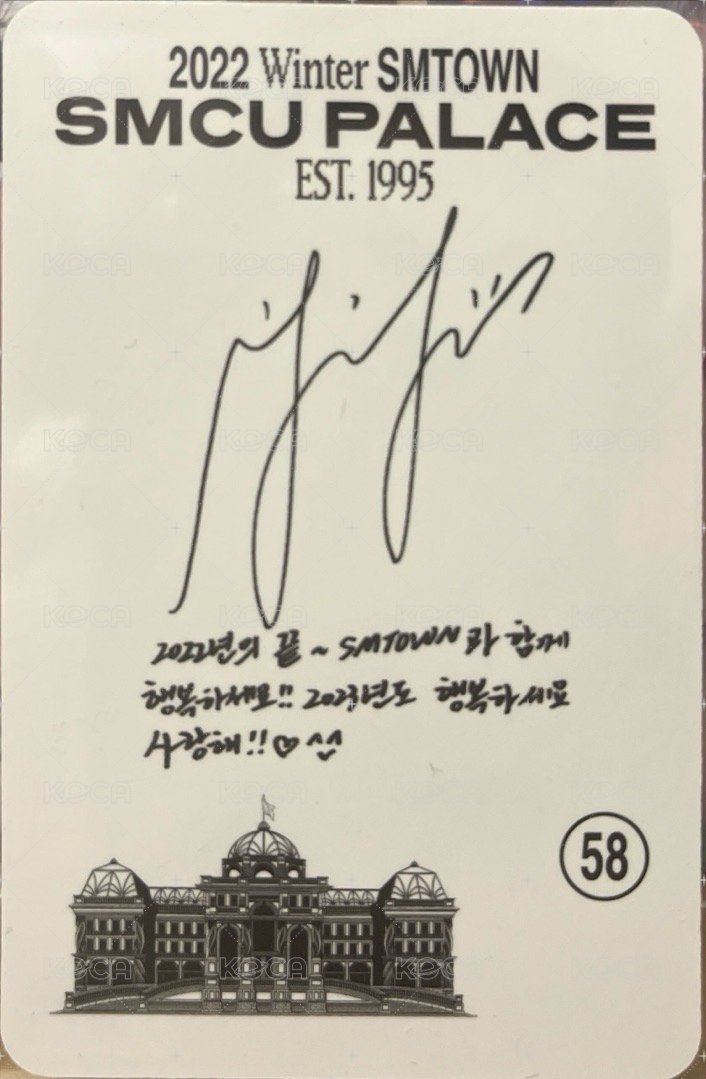 2022 Winter SMTOWN
SMCU PALACE
EST. 1995
2022년의 끝~ SMTOWN과 함께
행복하세요!! 2023년도 행복하세요
사랑해!!♡^^
58
KOCA